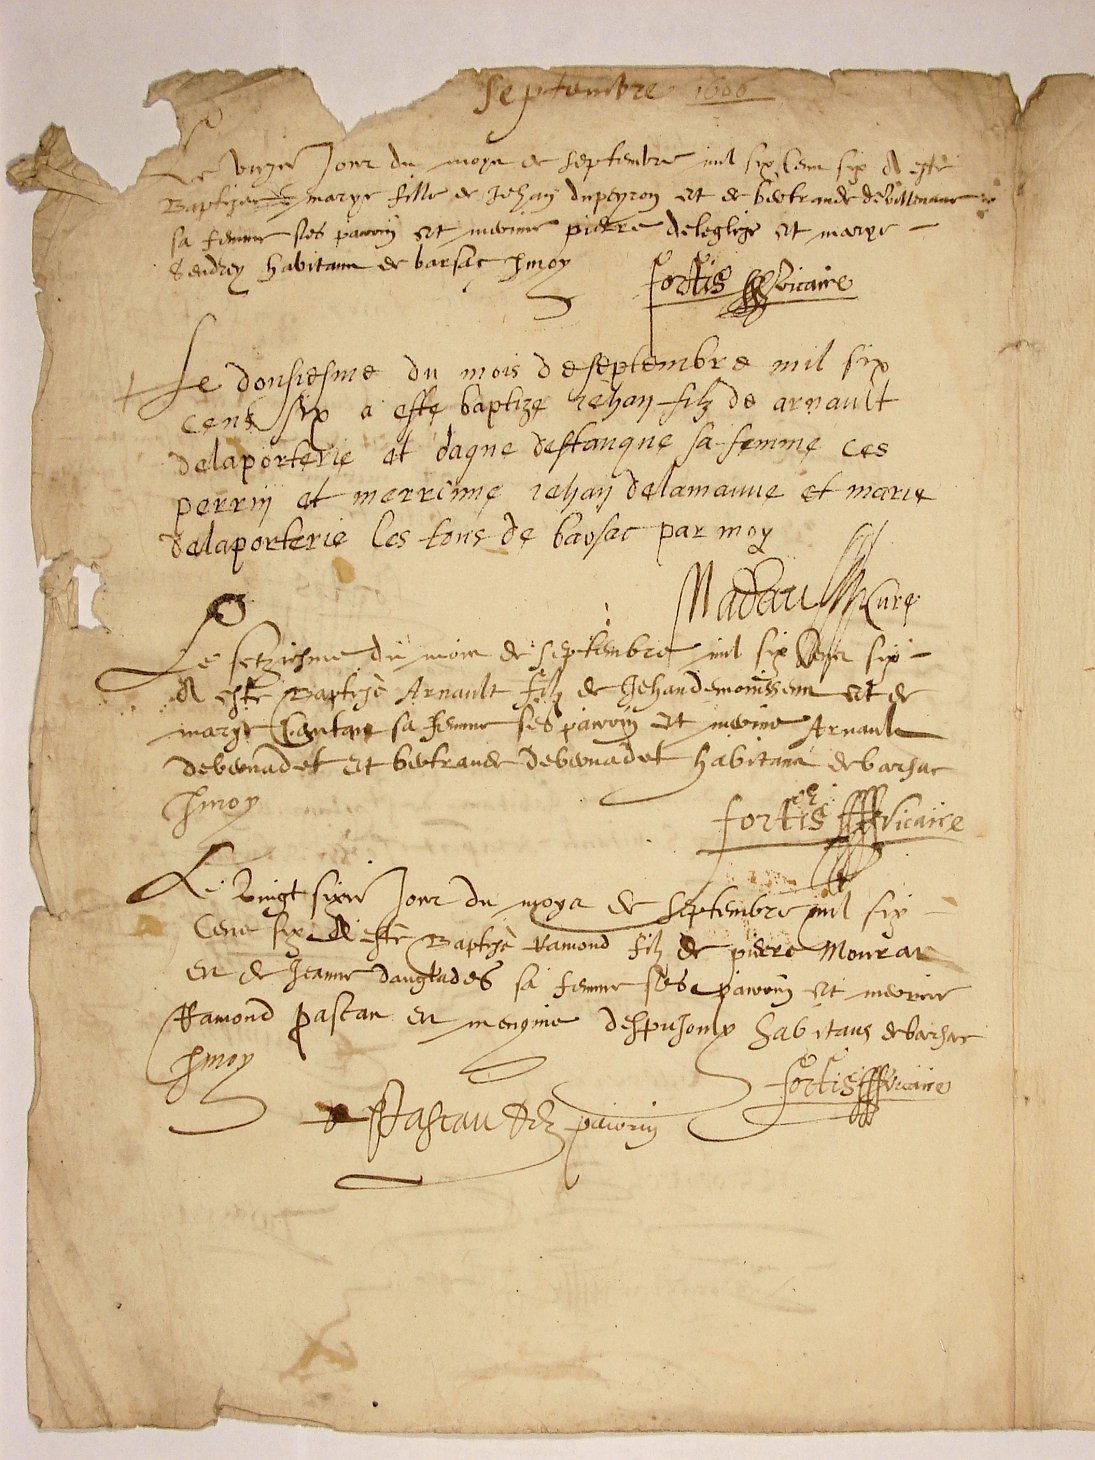 Septembre 1606
Le unziesme Jour du moys de Septembre mil six Cens six A esté
Baptizee marye fille de Jehan dupeyron et de bertrande de Villenave
sa femme ses parrin et merrine pierre deleglize et marye
habitans de barsac p moy
fortis Vicaire
Le dousiesme du mois de septembre mil six
cens six a esté baptizé iehan filz de arnault
delaporterie et dagne destanque sa femme ces
perrin et merrinne iehan delamauue et marie
delaporterie les tous de barsac par moy
Madau Curé
Le setziesme du mois de Septembre mil six Cens six
A esté Baptizé Arnault filz de Jehan demonissenn et de
marye Cantau sa femme ses parrin et merrine Arnault
debernadet et bertrande debernadet habitans de barsac
p moy
fortis Vicaire
Le Vingt sixie Jour du moys de Septembre mil six
Cens six A esté Baptizé Ramond filz de pierre Mourat
et de Jeanne dauglades sa femme ses parrin et merrine
Ramond pascau et mengine despujoulx habitans de barsac
p moy
fortis Vicaire
Pascau parrin